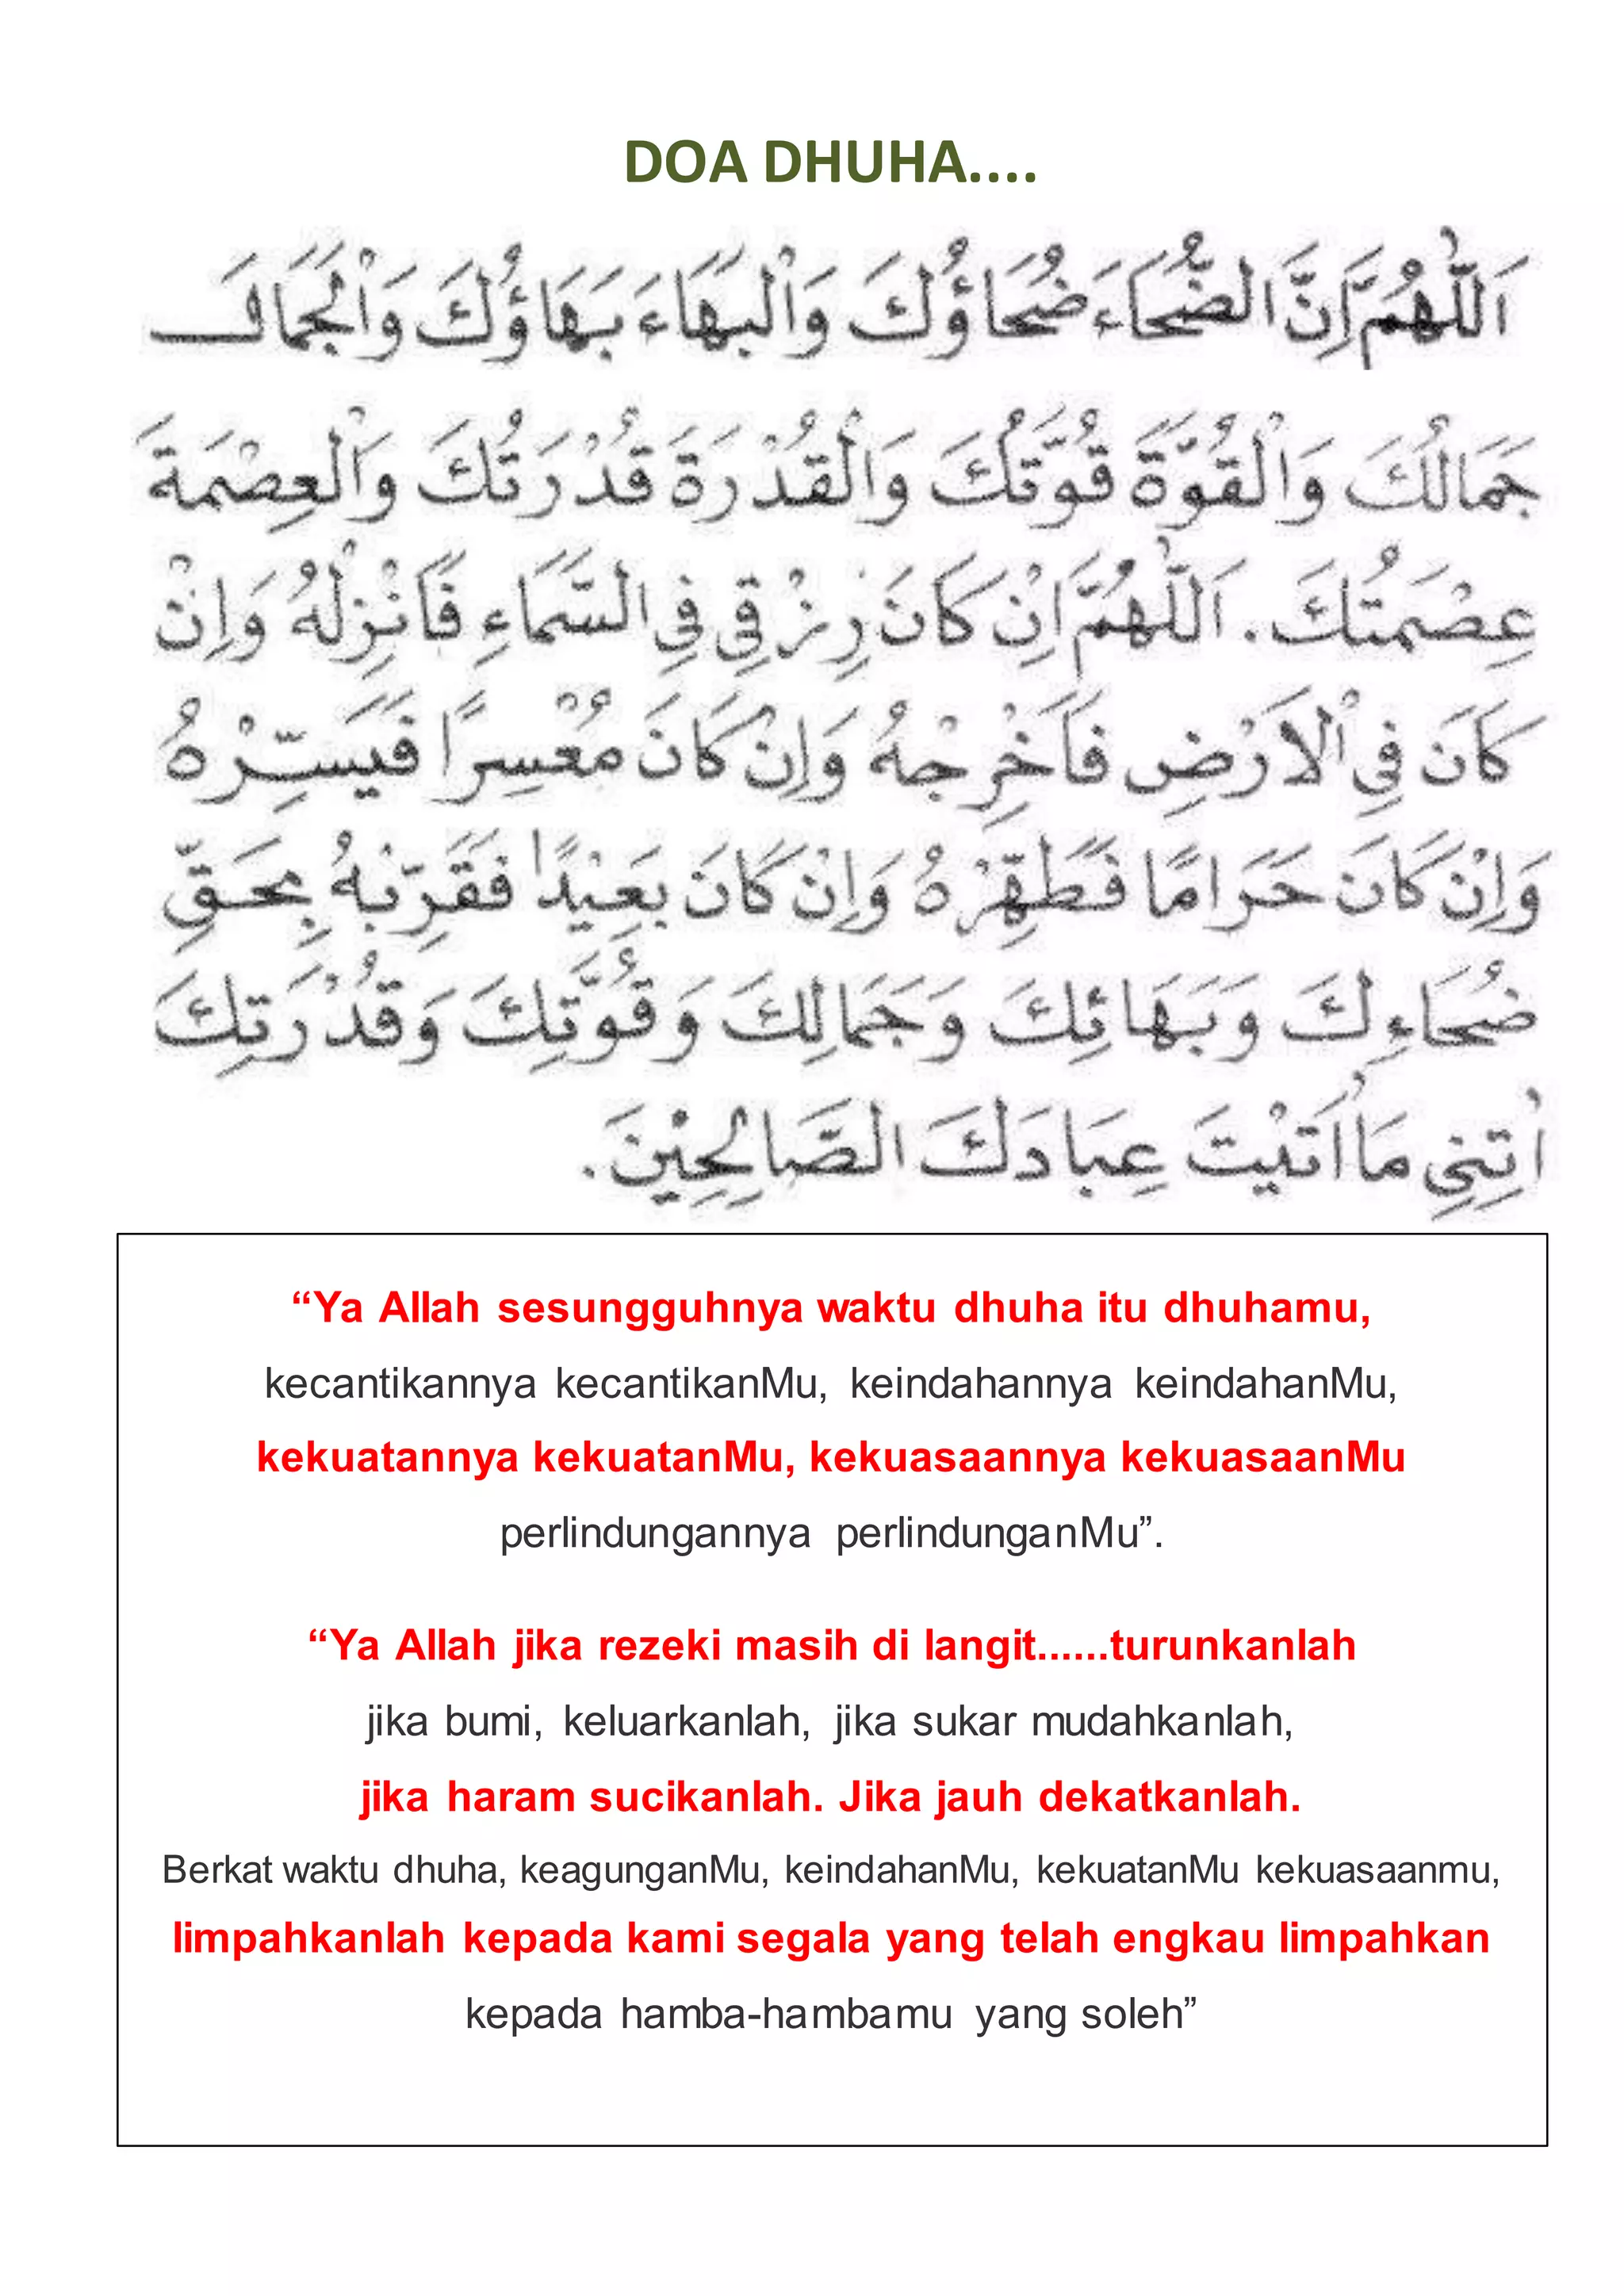 DOA DHUHA....
اَللّٰهُمَّ اِنَّ الضُّحَاءَ ضُحَاؤُكَ وَالْبَهَاءَ بَهَاؤُكَ وَالْجَمَالَ
جَمَالُكَ وَالْقُوَّةَ قُوَّتُكَ وَالْقُدْرَةَ قُدْرَتُكَ وَالْعِصْمَةَ
عِصْمَتُكَ. اَللّٰهُمَّ اِنْ كَانَ رِزْقِى فِى السَّمَاءِ فَاَنْزِلْهُ وَاِنْ
كَانَ فِى اْلاَرْضِ فَاَخْرِجْهُ وَاِنْ كَانَ مُعْسِرًا فَيَسِّرْهُ
وَاِنْ كَانَ حَرَامًا فَطَهِّرْهُ وَاِنْ كَانَ بَعِيْدًا فَقَرِّبْهُ بِحَقِّ
ضُحَاءِكَ وَبَهَائِكَ وَجَمَالِكَ وَقُوَّتِكَ وَقُدْرَتِكَ
اٰتِنِى مَا اَتَيْتَ عِبَادَكَ الصَّالِحِيْنَ.
“Ya Allah sesungguhnya waktu dhuha itu dhuhamu,
kecantikannya kecantikanMu, keindahannya keindahanMu,
kekuatannya kekuatanMu, kekuasaannya kekuasaanMu
perlindungannya perlindunganMu”.
“Ya Allah jika rezeki masih di langit......turunkanlah
jika bumi, keluarkanlah, jika sukar mudahkanlah,
jika haram sucikanlah. Jika jauh dekatkanlah.
Berkat waktu dhuha, keagunganMu, keindahanMu, kekuatanMu kekuasaanmu,
limpahkanlah kepada kami segala yang telah engkau limpahkan
kepada hamba-hambamu yang soleh”